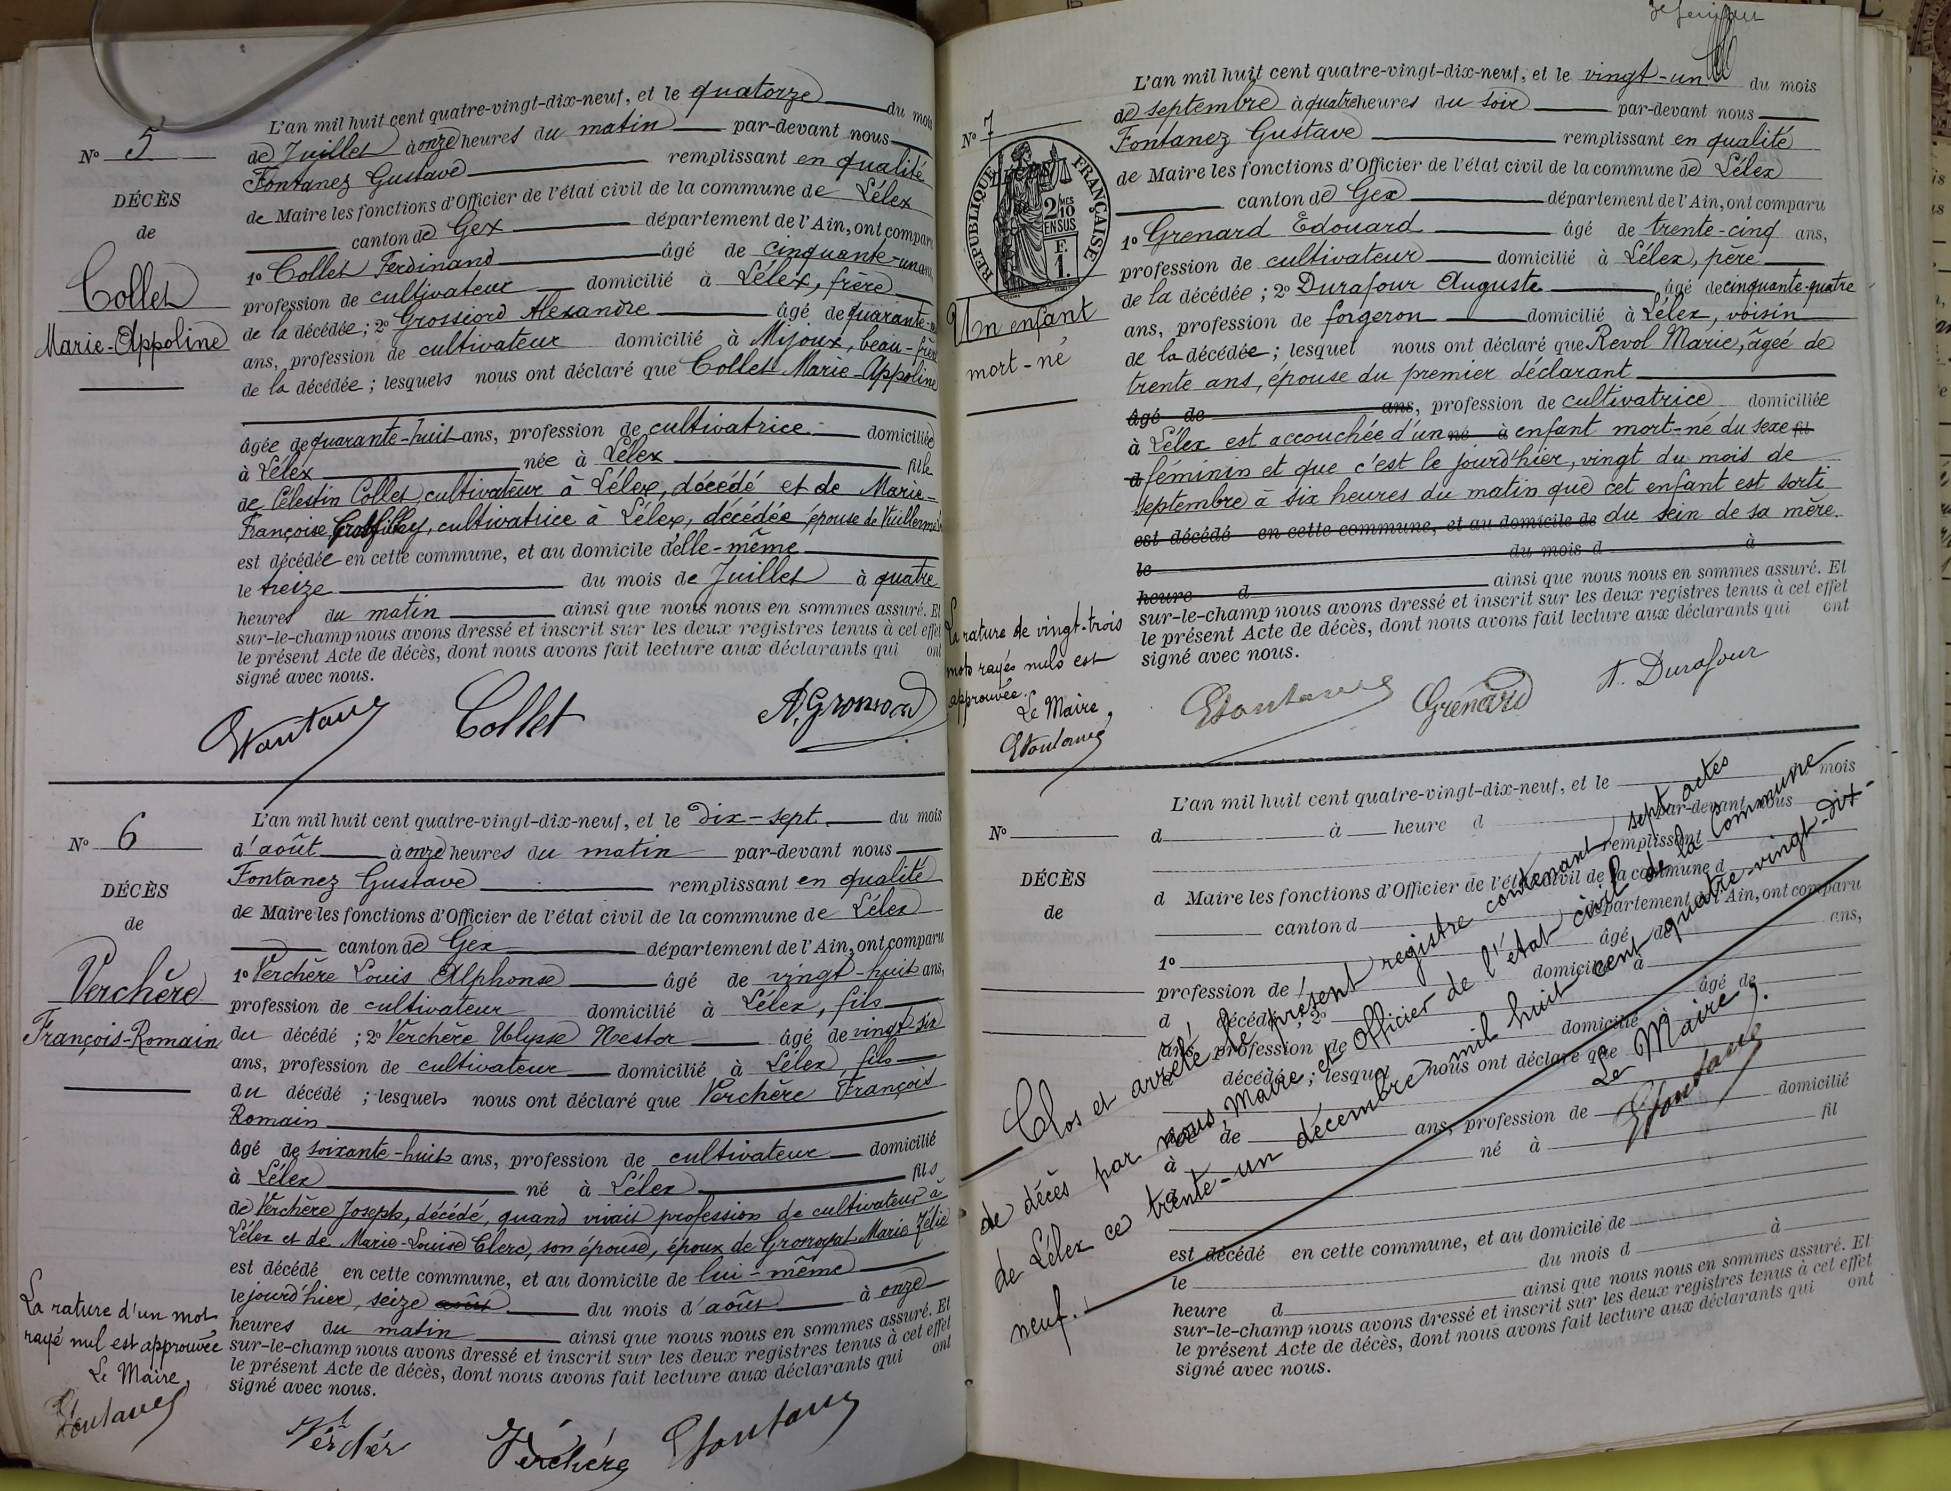 N° 5
DÉCÈS
de
Collet
Marie-Appoline
L'an mil huit cent quatre-vingt-dix-neuf, et le quatorze du mois
de Juillet à onze heures du matin par-devant nous
Fontanez Gustave remplissant en qualité
de Maire les fonctions d'Officier de l'état civil de la commune de Lélex
canton de Gex département de l'Ain, ont comparu
1° Collet Ferdinand âgé de cinquante-un ans
profession de cultivateur domicilié à Lélex, frère
de la décédée ; 2° Grossiord Alexandre âgé de quarante-
ans, profession de cultivateur domicilié à Mijoux, beau-frère
de la décédée ; lesquels nous ont déclaré que Collet Marie-Appoline
âgée de quarante-huit ans, profession de cultivatrice domiciliée
à Lélex née à Lélex fille
de Célestin Collet cultivateur à Lélex, décédé et de Marie-
Françoise cultivatrice à Lélex, décédée épouse de
est décédée en cette commune, et au domicile d'elle-même
le treize du mois de Juillet à quatre
heures du matin ainsi que nous nous en sommes assuré. Et
sur-le-champ nous avons dressé et inscrit sur les deux registres tenus à cet effet
le présent Acte de décès, dont nous avons fait lecture aux déclarants qui ont
signé avec nous.
GFontanez Collet A. Grossiord
N° 6
DÉCÈS
de
Verchère
François-Romain
L'an mil huit cent quatre-vingt-dix-neuf, et le dix-sept du mois
d'août à onze heures du matin par-devant nous
Fontanez Gustave remplissant en qualité
de Maire les fonctions d'Officier de l'état civil de la commune de Lélex
canton de Gex département de l'Ain, ont comparu
1° Verchère Louis Alphonse âgé de vingt-huit ans,
profession de cultivateur domicilié à Lélex, fils
du décédé ; 2° Verchère Ulysse Nestor âgé de vingt six
ans, profession de cultivateur domicilié à Lélex, fils
du décédé ; lesquels nous ont déclaré que Verchère François
Romain
âgé de soixante-huit ans, profession de cultivateur domicilié
à Lélex né à Lélex fils
de Verchère Joseph, décédé, quand vivait profession de cultivateur à
Lélex et de Marie-Louise Clerc, son épouse, époux de Grosgurat Marie Zélie
est décédé en cette commune, et au domicile de lui-même
le jourd'hier, seize août du mois d'août à onze
heures du matin ainsi que nous nous en sommes assuré. Et
sur-le-champ nous avons dressé et inscrit sur les deux registres tenus à cet effet
le présent Acte de décès, dont nous avons fait lecture aux déclarants qui ont
signé avec nous.
La rature d'un mot
rayé nul est approuvée
Le Maire,
GFontanez
Verchèr Verchère GFontanez
N° 7
RÉPUBLIQUE FRANÇAISE
DÉCÈS
2/10 MES
EN SUS
F.
1.
Un enfant
mort-né
L'an mil huit cent quatre-vingt-dix-neuf, et le vingt-un du mois
de septembre à quatre heures du soir par-devant nous
Fontanez Gustave remplissant en qualité
de Maire les fonctions d'Officier de l'état civil de la commune de Lélex
canton de Gex département de l'Ain, ont comparu
1° Grenard Edouard âgé de trente-cinq ans,
profession de cultivateur domicilié à Lélex, père
de la décédée ; 2° Durafour Auguste âgé de cinquante-quatre
ans, profession de forgeron domicilié à Lélex, voisin
de la décédée ; lesquel nous ont déclaré que Revol Marie, âgée de
trente ans, épouse du premier déclarant
âgé de ans, profession de cultivatrice domiciliée
à Lélex est accouchée d'un né à enfant mort-né du sexe fil
d féminin et que c'est le jourd'hier, vingt du mois de
septembre à six heures du matin que cet enfant est sorti
est décédé en cette commune, et au domicile de du sein de sa mère.
le du mois d à
heure d ainsi que nous nous en sommes assuré. Et
sur-le-champ nous avons dressé et inscrit sur les deux registres tenus à cet effet
le présent Acte de décès, dont nous avons fait lecture aux déclarants qui ont
signé avec nous.
La rature de vingt-trois
mots rayés nuls est
approuvée.
Le Maire,
GFontanez
GFontanez Grenard A. Durafour
N°
DÉCÈS
de
L'an mil huit cent quatre-vingt-dix-neuf, et le mois
d à heure d par-devant nous
remplissant
d Maire les fonctions d'Officier de l'état civil de la commune d
canton d département de l'Ain, ont comparu
1° âgé de ans,
profession de domicilié à
d décédé ; 2° âgé de
ans, profession de domicilié
décédé ; lesquel nous ont déclaré que
âgé de ans, profession de domicilié
à né à fil
est décédé en cette commune, et au domicile de
le du mois d à
heure d ainsi que nous nous en sommes assuré. Et
sur-le-champ nous avons dressé et inscrit sur les deux registres tenus à cet effet
le présent Acte de décès, dont nous avons fait lecture aux déclarants qui ont
signé avec nous.
Clos et arrêté le présent registre contenant sept actes
de décès par nous, Maire et Officier de l'état civil de la Commune
de Lélex ce trente-un décembre mil huit cent quatre-vingt-dix-
neuf.
Le Maire,
GFontanez